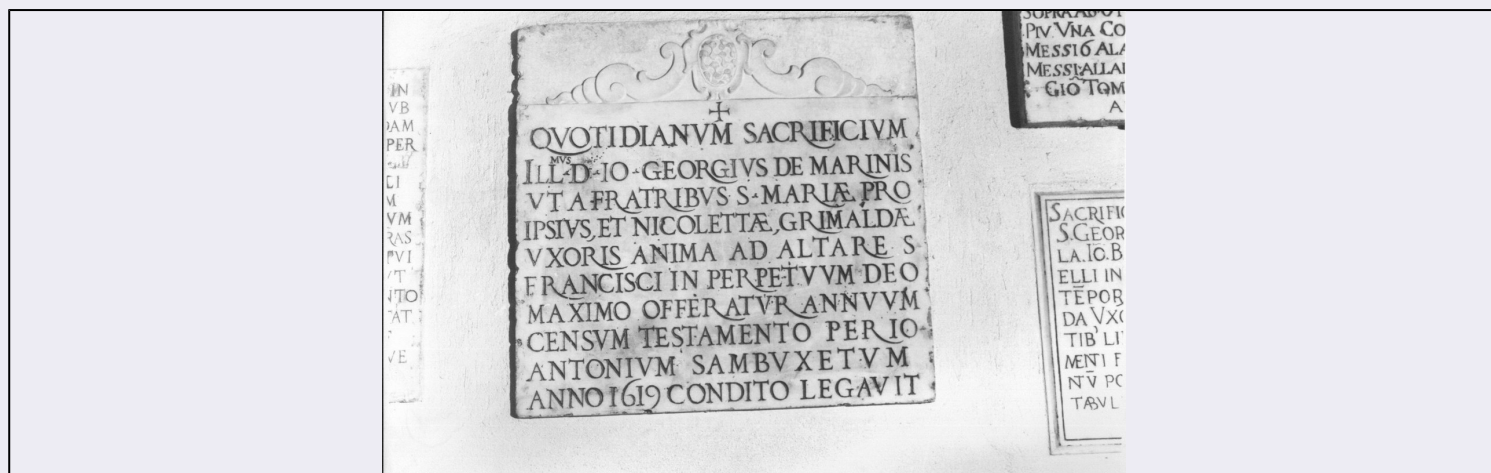 IN
VB
AM
PER
CI
M
VM
RAS
PVI
VT
NTO
TAT
VE
+
QVOTIDIANVM SACRIFICIVM
ILL·MVS D·IO·GEORGIVS DE MARINIS
VT A FRATRIBVS S·MARIÆ PRO
IPSIVS, ET NICOLETTÆ, GRIMALDÆ
VXORIS ANIMA AD ALTARE S
FRANCISCI IN PERPETVVM DEO
MAXIMO OFFERATVR ANNVVM
CENSVM TESTAMENTO PER IO
ANTONIVM SAMBVXETVM
ANNO 1619 CONDITO LEGAVIT
PIV. VNA CO
MESSI 6 ALA
MESSI: ALLA
GIO TOM
A
SACRIFI
S. GEOR
LA. IO. B
ELLI IN
TĒPOR
DA VXO
TIB' LI
MENTI F
NTV̄ PO
TABVL